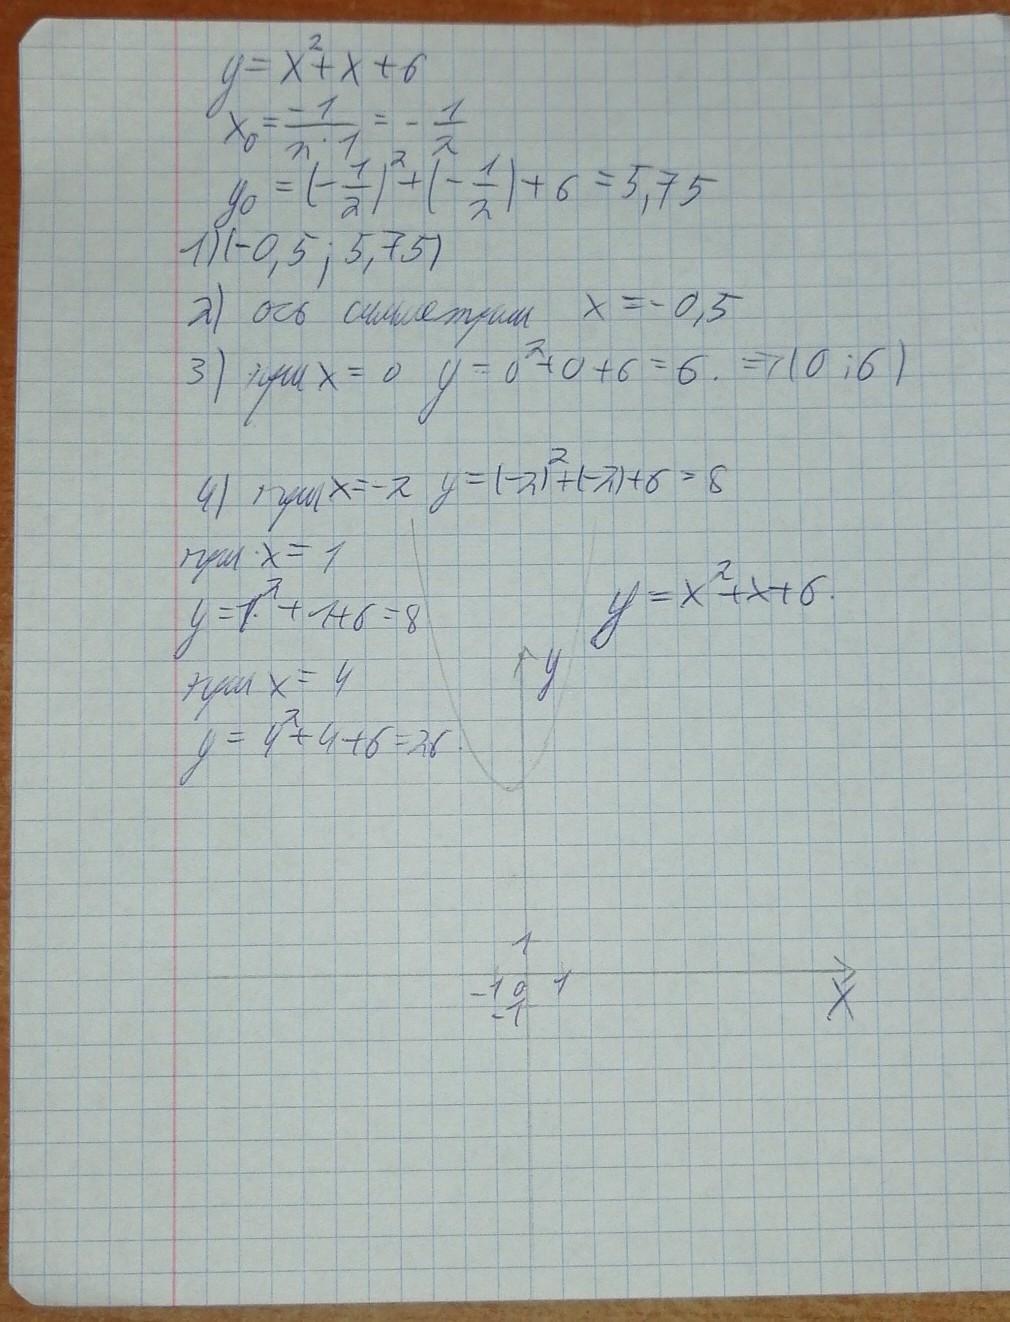 y = x² + x + 6
x₀ = -1/2·1 = -1/2
y₀ = (-1/2)² + (-1/2) + 6 = 5,75
1) (-0,5; 5,75)
2) ось симметрии x = -0,5
3) при x = 0 y = 0² + 0 + 6 = 6. => (0; 6)
4) при x = -2 y = (-2)² + (-2) + 6 = 8
при x = 1
y = 1² + 1 + 6 = 8
y = x² + x + 6.
y
при x = 4
y = 4² + 4 + 6 = 26
1
-1 0 1
-1
X